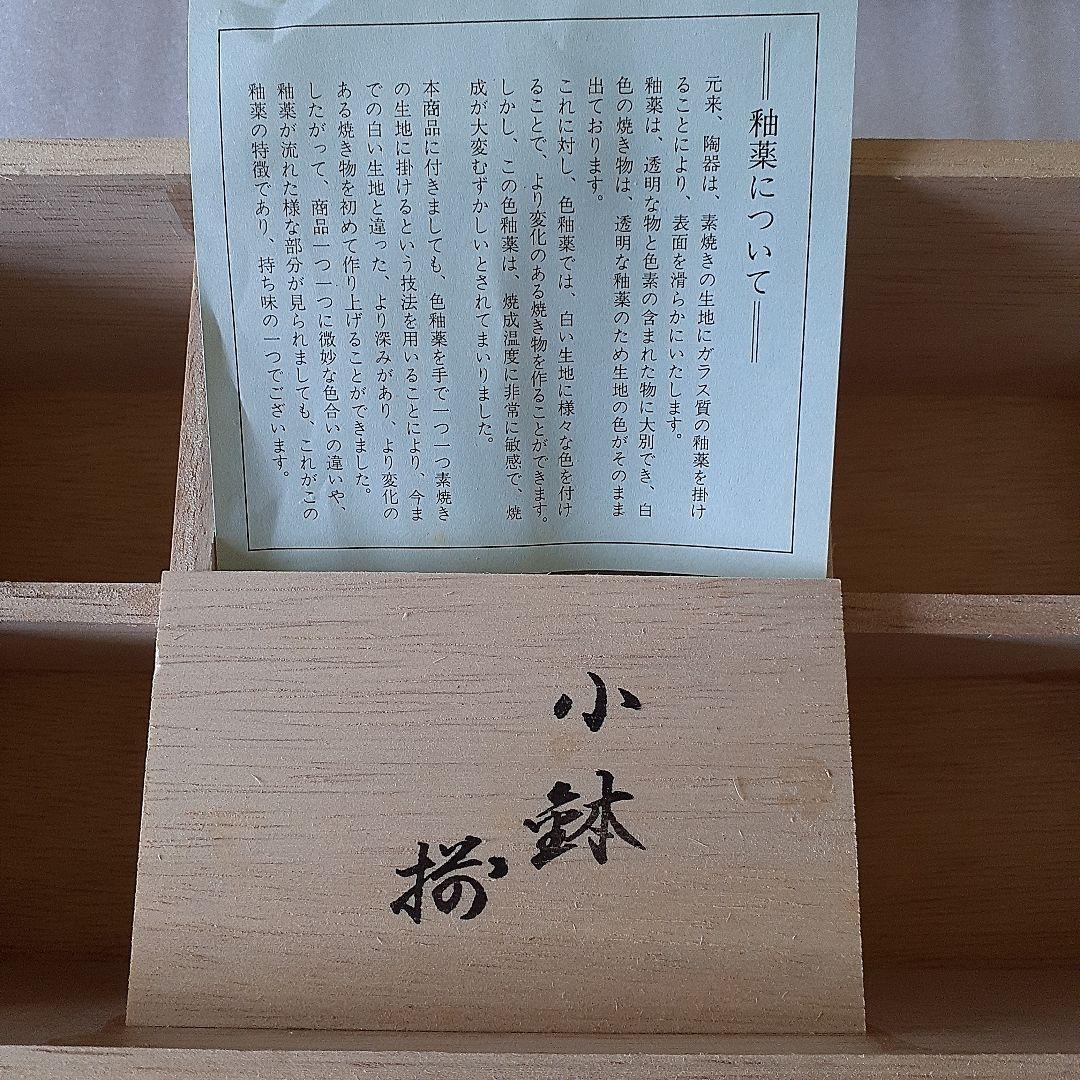 釉薬について
元来、陶器は、素焼きの生地にガラス質の釉薬を掛け
ることにより、表面を滑らかにいたします。
釉薬は、透明な物と色素の含まれた物に大別でき、白
色の焼き物は、透明な釉薬のため生地の色がそのまま
出ております。
これに対し、色釉薬では、白い生地に様々な色を付け
ることで、より変化のある焼き物を作ることができます。
しかし、この色釉薬は、焼成温度に非常に敏感で、焼
成が大変むずかしいとされてまいりました。
本商品に付きましても、色釉薬を手で一つ一つ素焼き
の生地に掛けるという技法を用いることにより、今ま
での白い生地と違った、より深みがあり、より変化の
ある焼き物を初めて作り上げることができました。
したがって、商品一つ一つに微妙な色合いの違いや、
釉薬が流れた様な部分が見られましても、これがこの
釉薬の特徴であり、持ち味の一つでございます。
小鉢
揃